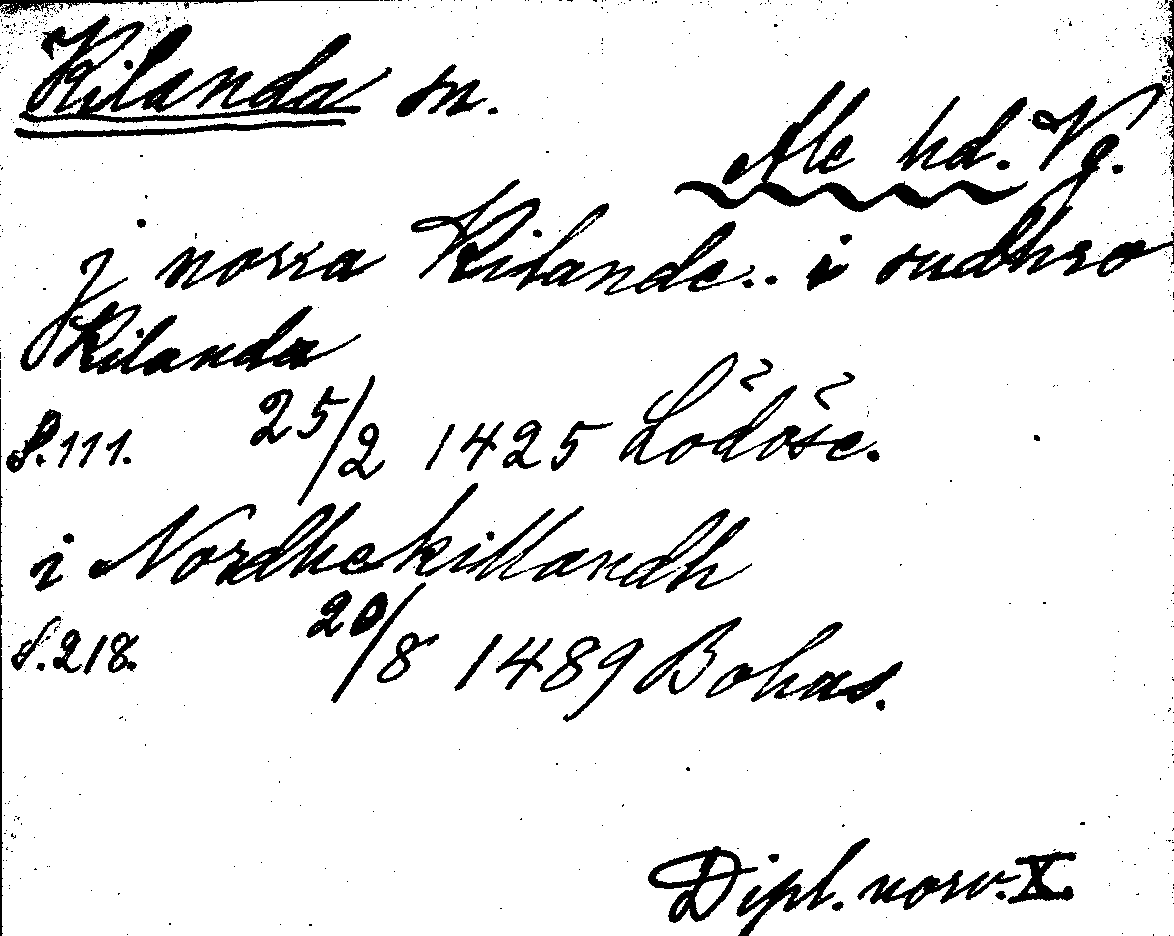 Kilanda sn.
Ale hd. Vg.
j norra Kilande.. i sudhra
Kilanda
S. 111. 25/2 1425 Lödöse.
i Nordhekillandh
S. 218. 20/8 1489 Bohus.
Dipl. norv. X.